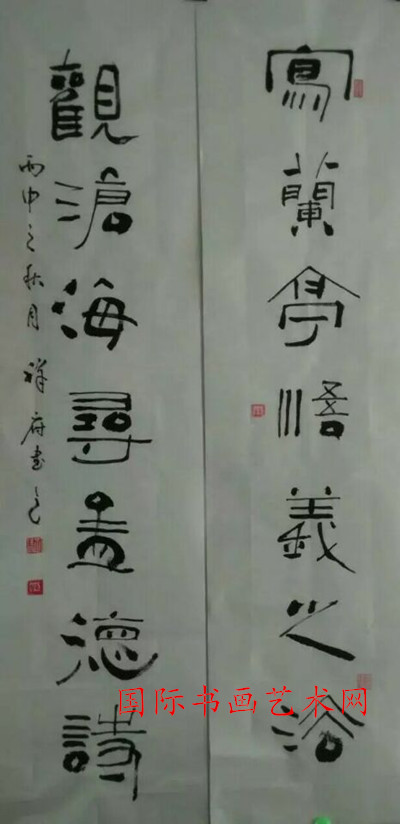 寫蘭亭悟義之
觀滄海尋孟德詩
丙申之秋月祥府书
国际书画艺术网